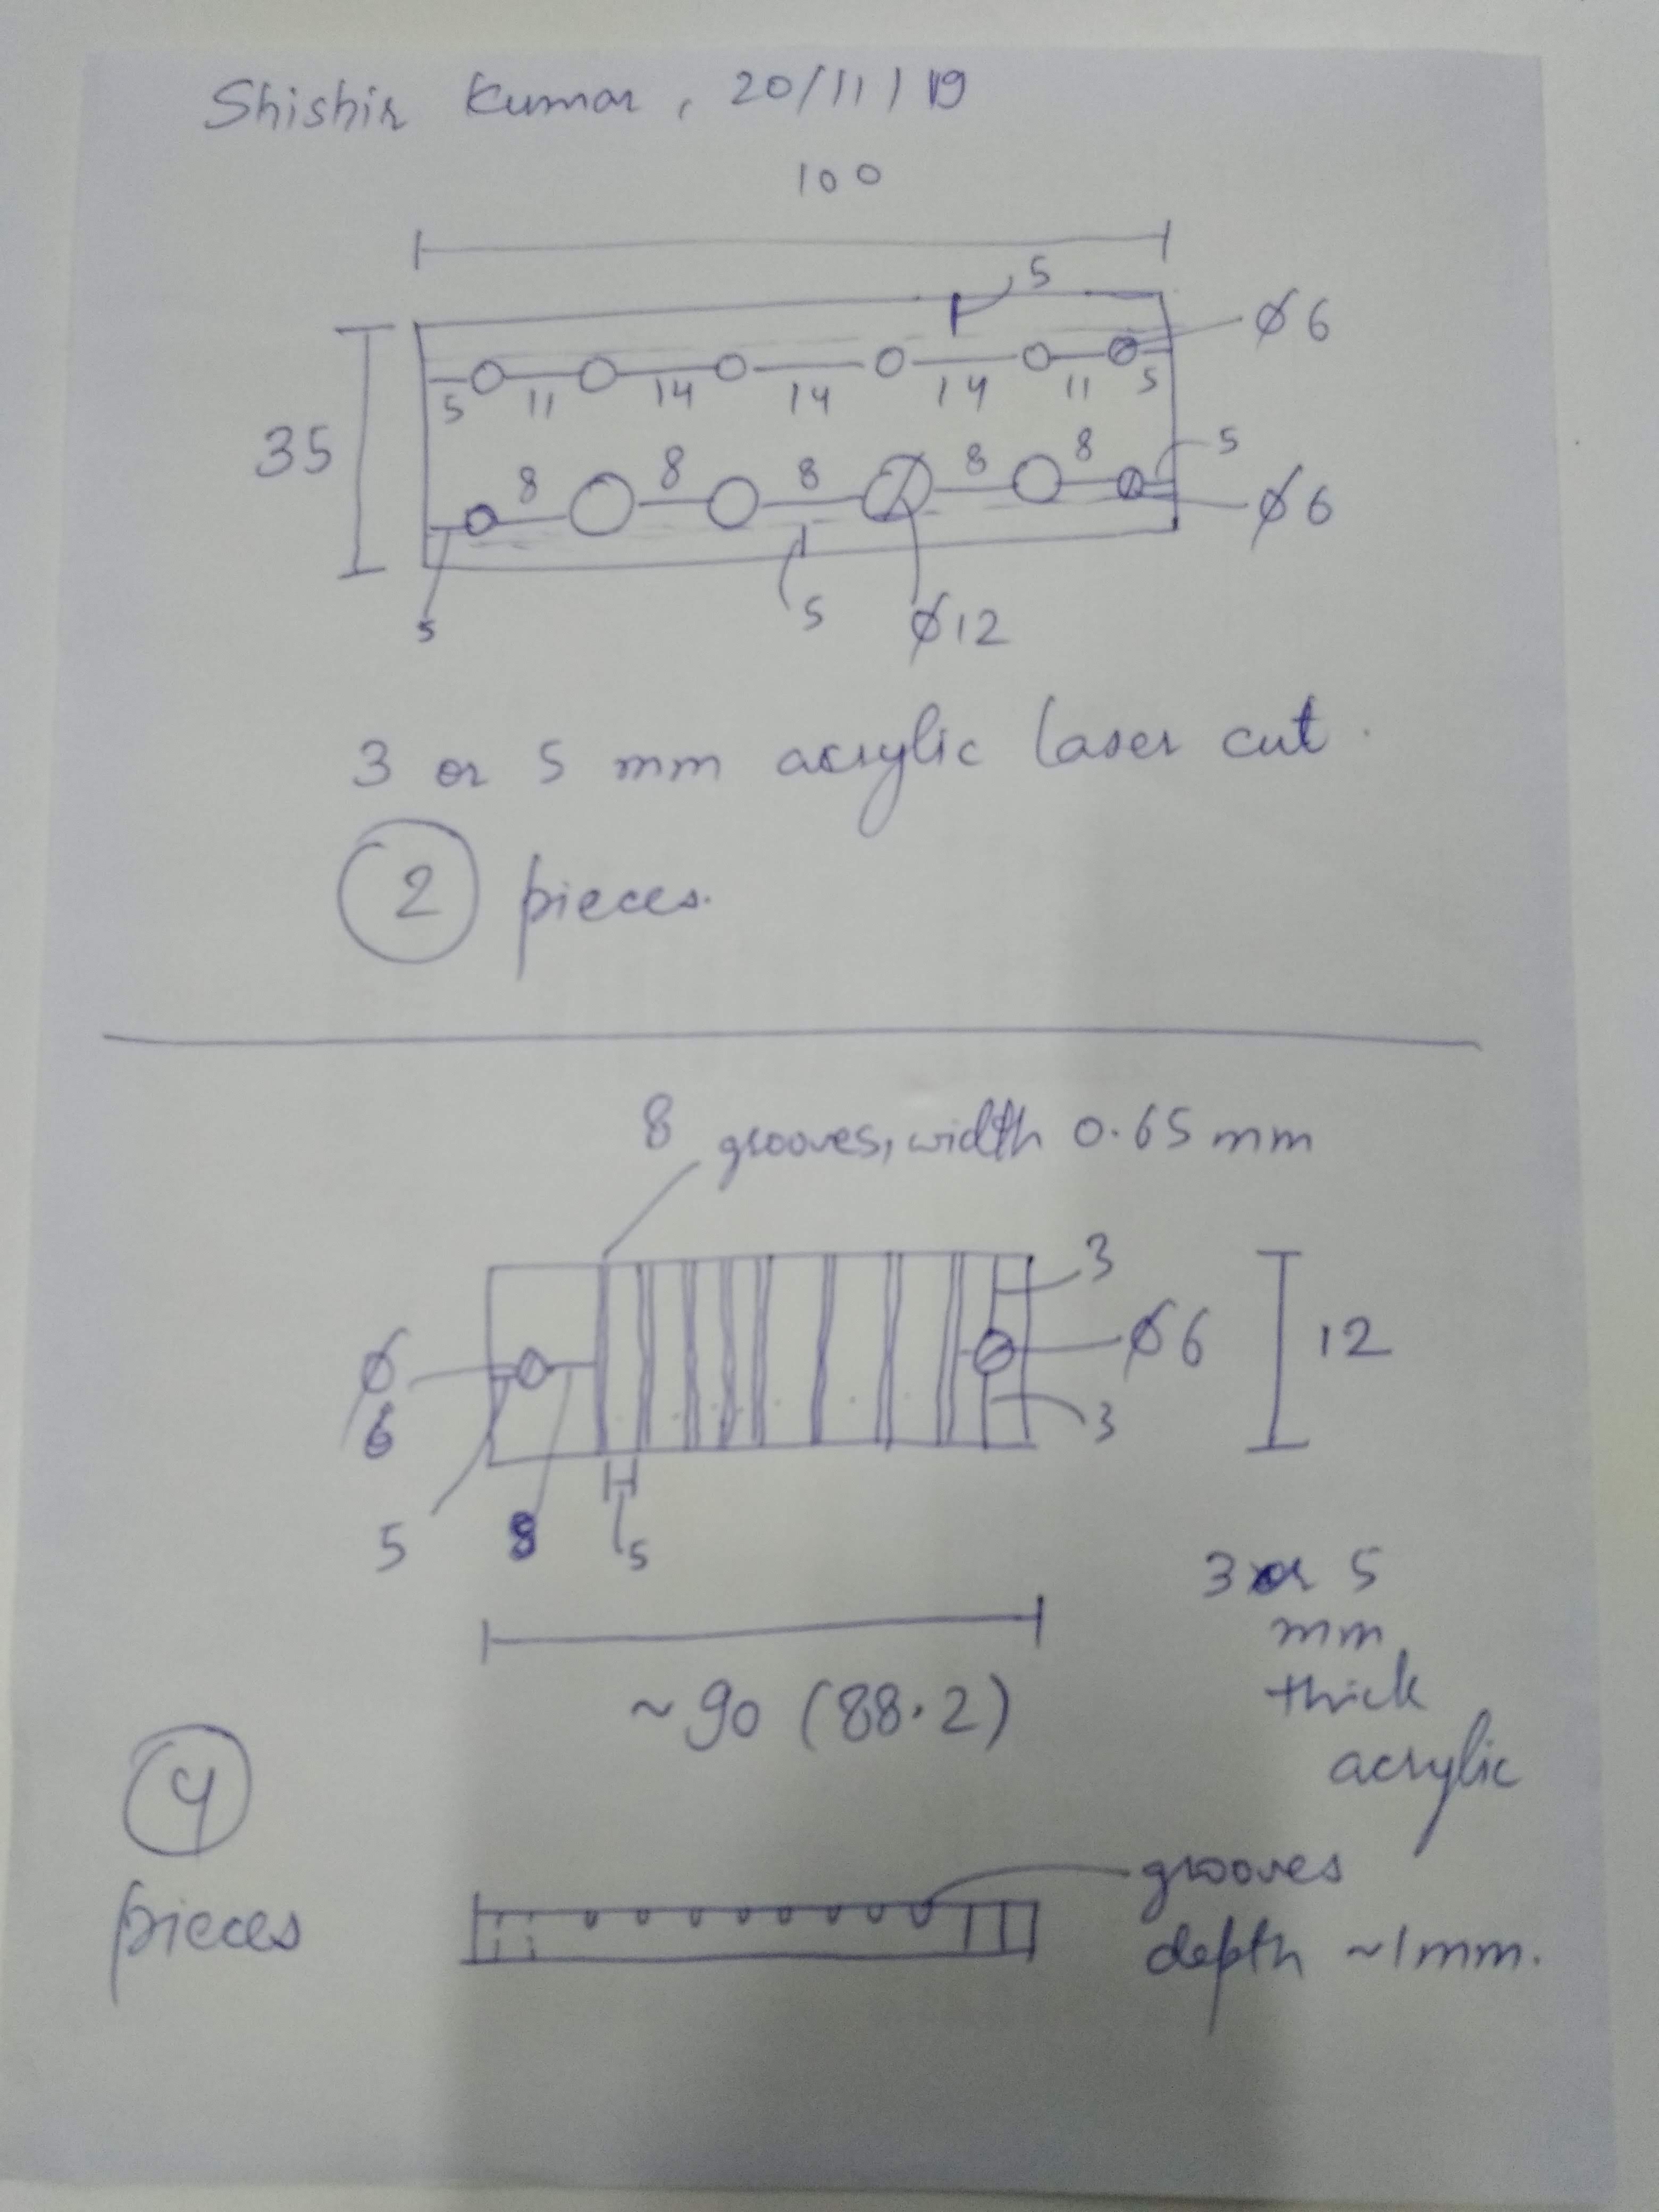 Shishir Kumar, 20/11/19
100
5
Ø6
5 11 14 14 14 11 5
35
8 8 8 8 8 5
Ø6
5 5 Ø12
3 or 5 mm acrylic laser cut.
2 pieces.
8 grooves, width 0.65 mm
3
Ø6 12
Ø
6
3
5 8 5
~90 (88.2)
3 or 5
mm
thick
acrylic
4
pieces
grooves
depth ~1mm.